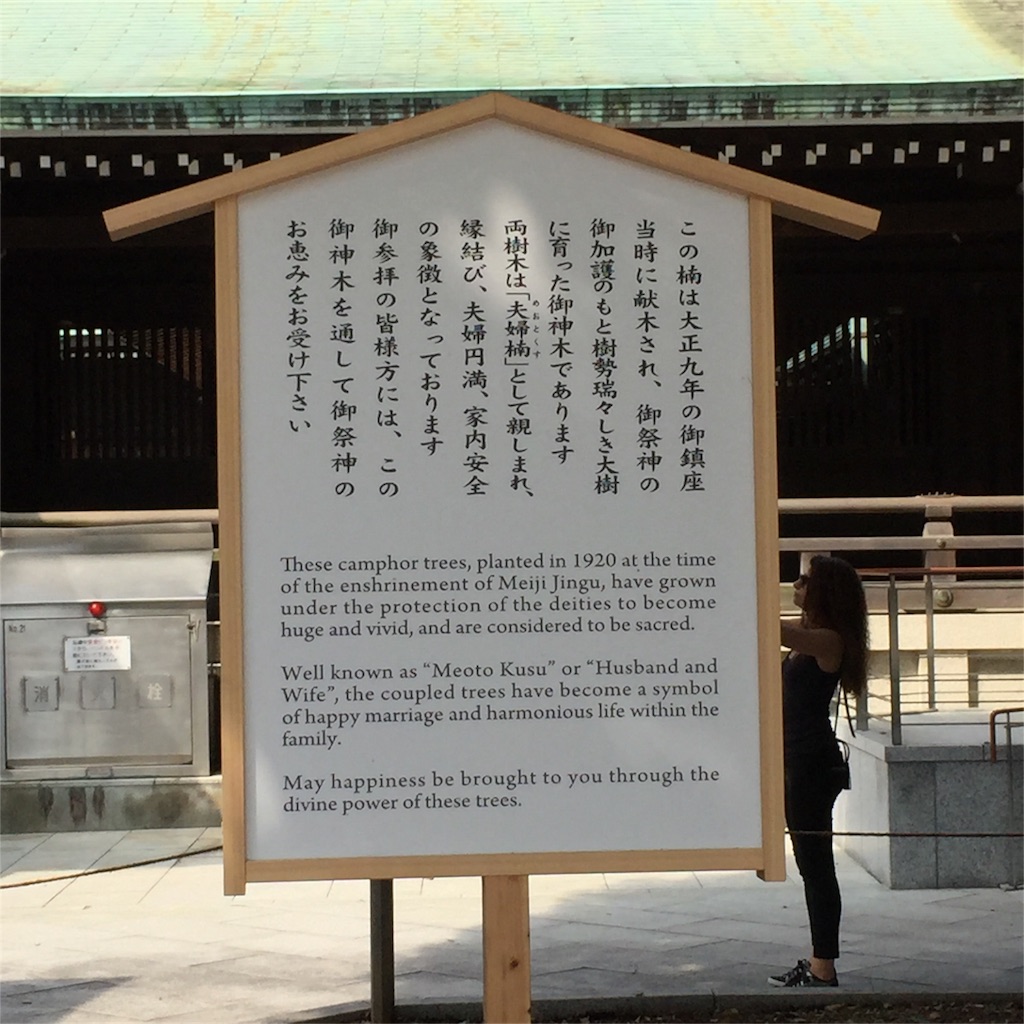 この楠は大正九年の御鎮座
当時に献木され、御祭神の
御加護のもと樹勢瑞々しき大樹
に育った御神木であります
両樹木は「夫婦楠」として親しまれ、
めおとくす
縁結び、夫婦円満、家内安全
の象徴となっております
御参拝の皆様方には、この
御神木を通して御祭神の
お恵みをお受け下さい
These camphor trees, planted in 1920 at the time
of the enshrinement of Meiji Jingu, have grown
under the protection of the deities to become
huge and vivid, and are considered to be sacred.
Well known as “Meoto Kusu” or “Husband and
Wife”, the coupled trees have become a symbol
of happy marriage and harmonious life within the
family.
May happiness be brought to you through the
divine power of these trees.
No.21
消火栓